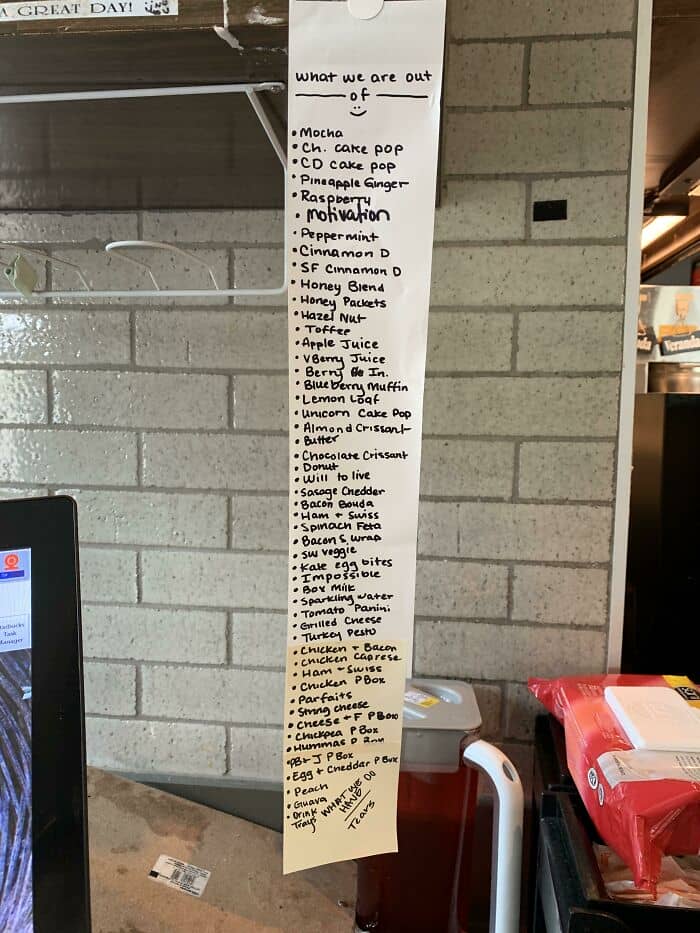 A GREAT DAY!
what we are out
of
• Mocha
• Ch. cake pop
• CD cake pop
• Pineapple Ginger
• Raspberry
• motivation
• Peppermint
• Cinnamon D
• SF Cinnamon D
• Honey Blend
• Honey Packets
• Hazel Nut
• Toffee
• Apple Juice
• VBerry Juice
• Berry In.
• Blueberry Muffin
• Lemon Loaf
• Unicorn Cake Pop
• Almond Crissant
• Butter
• Chocolate Crissant
• Donut
• Will to live
• Sasage Chedder
• Bacon Gouda
• Ham + Swiss
• Spinach Feta
• Bacon S. wrap
• SW veggie
• Kale egg bites
• Impossible
• Box Milk
• Sparkling water
• Tomato Panini
• Grilled Cheese
• Turkey Pesto
• Chicken + Bacon
• Chicken Caprese
• Ham + Swiss
• Chicken PBox
• Parfaits
• String cheese
• Cheese + F PBox
• Chickpea P Box
• Hummas P
• PB + J P Box
• Egg + Cheddar P Box
• Peach
• Guava
• Drink
Trays
WHAT WE
HAVE DO
Tears
Starbucks
Task
Manager